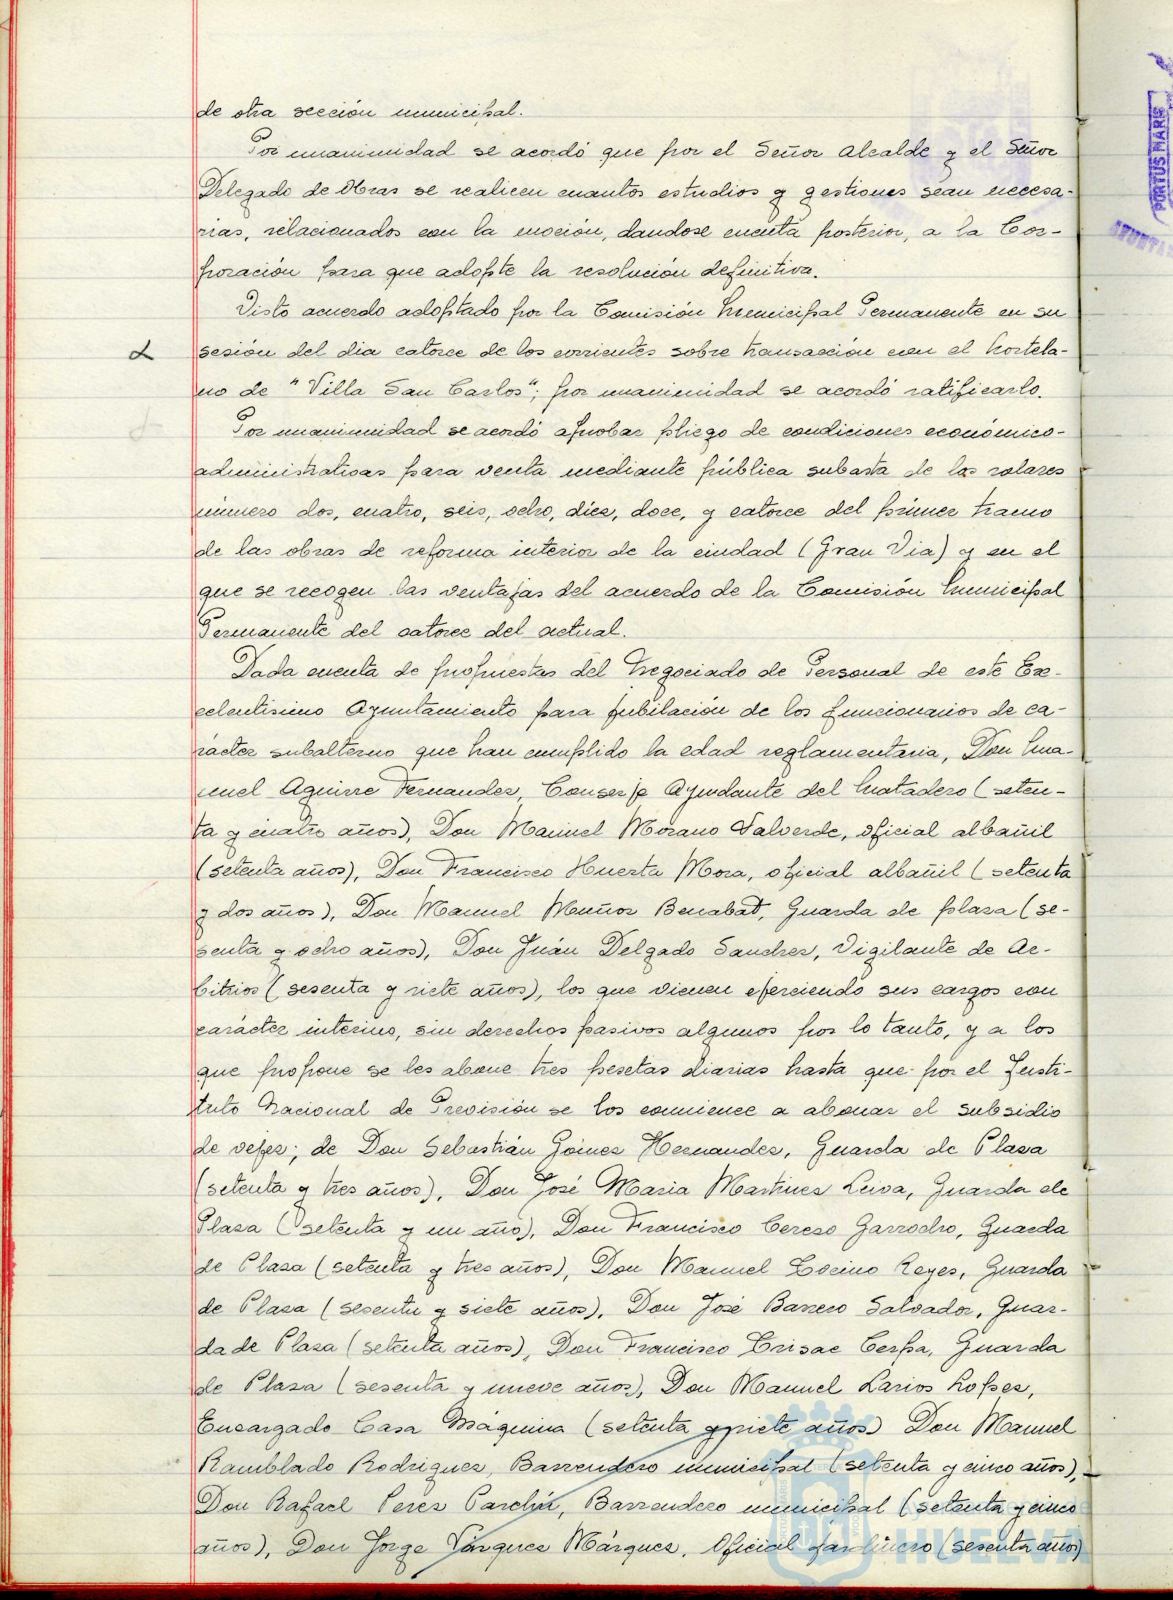 de otra sección municipal.
Por unanimidad se acordó que por el Señor Alcalde y el Señor
Delegado de Obras se realicen cuantos estudios y gestiones sean necesa-
rias, relacionados con la moción, dandose cuenta posterior, a la Cor-
poración para que adopte la resolución definitiva.
Visto acuerdo adoptado por la Comisión Municipal Permanente en su
sesión del dia catorce de los corrientes sobre transacción con el hortela-
no de "Villa San Carlos"; por unanimidad se acordó ratificarlo.
Por unanimidad se acordó aprobar pliego de condiciones económico-
administrativas para venta mediante pública subasta de los solares
número dos, cuatro, seis, ocho, diez, doce, y catorce del primer tramo
de las obras de reforma interior de la ciudad (Gran Via) y en el
que se recogen las ventajas del acuerdo de la Comisión Municipal
Permanente del catorce del actual.
Dada cuenta de propuestas del Negociado de Personal de este Ex-
celentisimo Ayuntamiento para jubilación de los funcionarios de ca-
rácter subalterno que han cumplido la edad reglamentaria, Don Ma-
nuel Aguirre Fernandez, Conserje Ayudante del Matadero (seten-
ta y cuatro años), Don Manuel Morano Valverde, oficial albañil
(setenta años), Don Francisco Huerta Mora, oficial albañil (setenta
y dos años), Don Manuel Muñoz Benabat, Guarda de plaza (se-
senta y ocho años), Don Juán Delgado Sanchez, Vigilante de Ar-
bitrios (sesenta y siete años), los que vienen ejerciendo sus cargos con
carácter interino, sin derechos pasivos algunos por lo tanto, y a los
que propone se les abone tres pesetas diarias hasta que por el Insti-
tuto Nacional de Previsión se los comience a abonar el subsidio
de vejez; de Don Sebastián Goinez Hernandez, Guarda de Plaza
(setenta y tres años), Don José Maria Martinez Leiva, Guarda de
Plaza (setenta y un año), Don Francisco Cerezo Garrocho, Guarda
de Plaza (setenta y tres años), Don Manuel Cocino Reyes, Guarda
de Plaza (sesenta y siete años), Don José Barrero Salvador, Guar-
da de Plaza (setenta años), Don Francisco Crisac Cerpa, Guarda
de Plaza (sesenta y nueve años), Don Manuel Larios Lopez,
Encargado Casa Máquina (setenta y siete años) Don Manuel
Ramblado Rodriguez, Barrendero municipal (setenta y cinco años),
Don Rafael Perez Parchin, Barrendero municipal (setenta y cinco
años), Don Jorge Vázquez Márquez, Oficial jardinero (sesenta años)
PORTUS MARIS
HUELVA